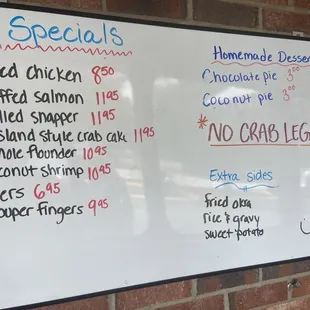 Specials
ed chicken 8⁵⁰
ffed salmon 11⁹⁵
lled snapper 11⁹⁵
sland style crab cake 11⁹⁵
hole flounder 10⁹⁵
conut shrimp 10⁹⁵
ers 6⁹⁵
ouper fingers 9⁹⁵
Homemade Desser
Chocolate pie 3⁰⁰
Coconut pie 3⁰⁰
*NO CRAB LEG
Extra sides
fried okra
rice & gravy
sweet potato